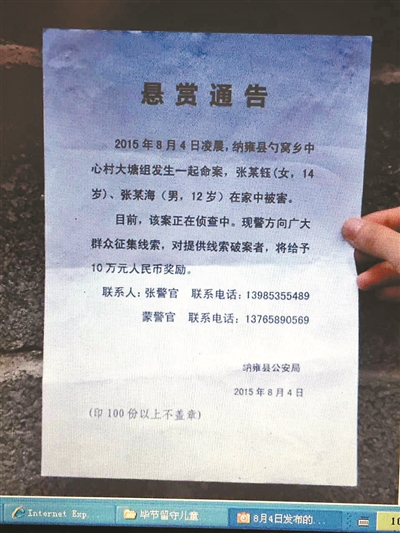 悬赏通告
2015年8月4日凌晨，纳雍县勺窝乡中
心村大塘组发生一起命案，张某钰(女，14
岁)、张某海（男，12岁）在家中被害。
目前，该案正在侦查中。现警方向广大
群众征集线索，对提供线索破案者，将给予
10万元人民币奖励。
联系人：张警官 联系电话：13985355489
蒙警官 联系电话：13765890569
纳雍县公安局
2015年8月4日
(印100份以上不盖章)
Internet Exp... 毕节留守儿童... 8月4日发布的... 10